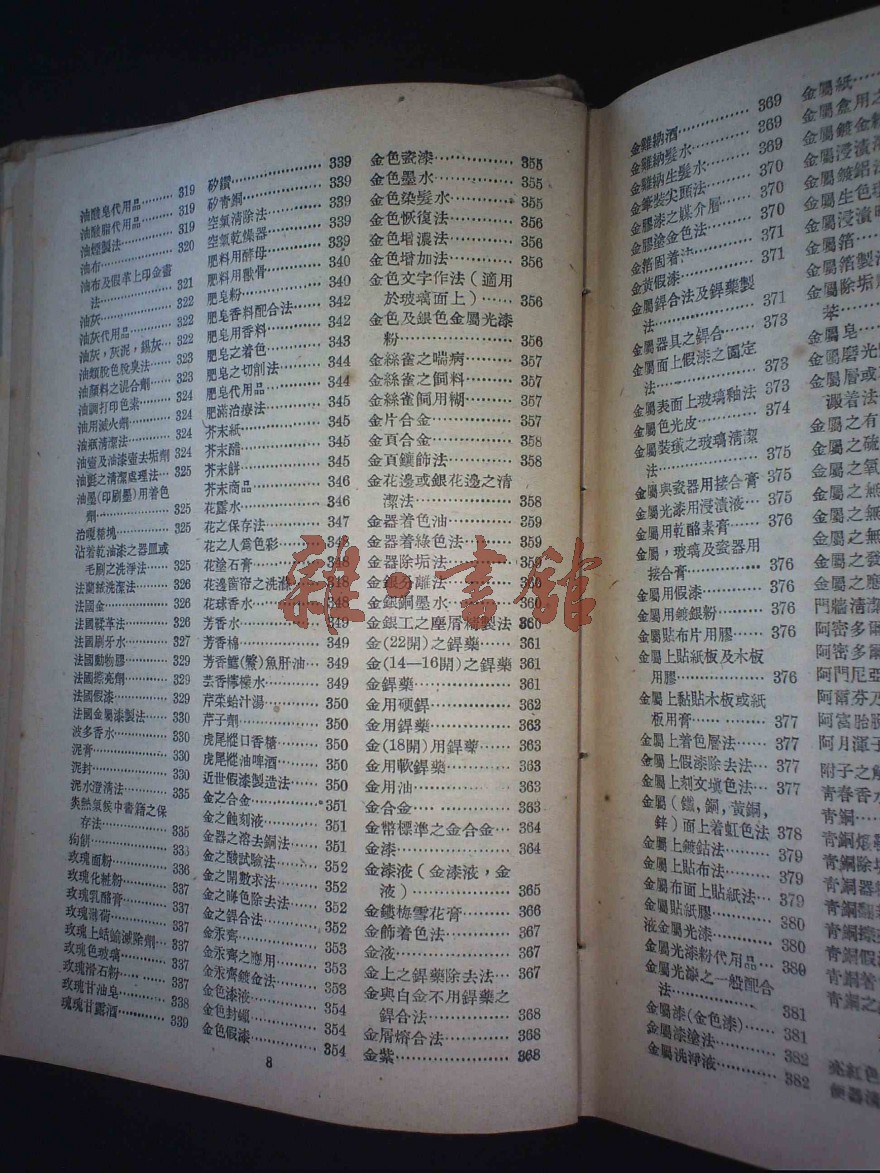 油酸皂代用品……319
油酸脂代用品……319
油煙製法……319
油布……320
油布及假革上印金畫
法……321
油灰……322
油灰代用品……322
油灰,灰泥,錫灰……322
油類脫色脫臭法……324
油顏料之混合劑……324
油調打印色素……324
油用滅火劑……324
油瓶清潔法……324
油壺及油漆壺去垢劑 324
油氈之清潔處理法…325
油墨(印刷墨)用着色
劑……325
治嗄糖塊……325
沾着乾油漆之器皿或
毛刷之洗淨法……325
法蘭絨洗潔法……326
法國金……326
法國鞣革法……326
法國刷牙水……327
法國動物膠……329
法國擦亮劑……329
法國假漆……329
法國金屬漆製法……330
波多香水……330
泥膏……330
泥封……330
泥水澄清法……335
炎熱氣候中書籍之保
存法……335
狗餅……336
玫瑰面粉……336
玫瑰化粧粉……337
玫瑰乳醋膏……337
玫瑰薄荷……337
玫瑰上蛞蝓滅除劑…337
玫瑰色玻璃……337
玫瑰滑石粉……337
玫瑰甘油皂……338
瑰瑰甘露酒……339
矽鑽……339
矽青銅……339
空氣清除法……339
空氣乾燥器……339
肥料用酵母……339
肥料用獸骨……340
肥皂粉……340
肥皂香料配合法……342
肥皂用香料……342
肥皂之着色……343
肥皂之切削法……344
肥皂代用品……344
肥滿治療法……345
芥末紙……345
芥末醋……345
芥末餅……345
芥末商品……346
花露水……346
花之保存法……347
花之人爲色彩……347
花塗石膏……348
花邊窗帘之洗滌……348
花球香水……348
芳香水……349
芳香棉……349
芳香鱈(鱉)魚肝油…349
芸香檸檬水……349
芹菜蛤汁湯……350
芹子劑……350
虎尾樅口香糖……350
虎尾樅油啤酒……350
近世假漆製造法……350
金之合金……351
金之蝕刻液……351
金器之溶去銅法……351
金之酸試驗法……352
金之開數求法……352
金之暗色除去法……352
金之銲合法……352
金汞齊……353
金汞齊之應用……353
金汞齊鍍金法……353
金色漆液……354
金色封蠟……354
金色假漆……354
金色瓷漆……355
金色墨水……355
金色染髮水……355
金色恢復法……356
金色增濃法……356
金色增加法……356
金色文字作法(適用
於玻璃面上)……356
金色及銀色金屬光漆
粉……356
金絲雀之喘病……357
金絲雀之飼料……357
金絲雀飼用糊……357
金片合金……357
金頁合金……358
金頁鑲飾法……358
金花邊或銀花邊之清
潔法……358
金器着色油……359
金器着綠色法……359
金器除垢法……359
金銀分離法……360
金銀銅墨水……360
金銀工之塵屑精製法 360
金(22開)之銲藥……361
金(14—16開)之銲藥 361
金銲藥……361
金用硬銲……363
金用銲藥……363
金(18開)用銲藥……363
金用軟銲藥……363
金用油……363
金合金……363
金幣標準之金合金…364
金漆……364
金漆液(金漆液,金
液)……365
金鏤梅雪花膏……366
金飾着色法……367
金液……367
金上之銲藥除去法…367
金與白金不用銲藥之
銲合法……368
金屑熔合法……368
金紫……368
8
金雞納酒……369
金雞納髮水……369
金雞納生髮水……369
金筆裝尖頭法……370
金膠漆之媒介層……370
金膠塗金色法……370
金箔固着法……371
金黃假漆……371
金屬銲合法及銲藥製
法……371
金屬器具之銲合……373
金屬面上假漆之固定
法……373
金屬表面上玻璃釉法 373
金屬色光皮……374
金屬裝璜之玻璃清潔
法……375
金屬與瓷器用接合膏 375
金屬光漆用浸漬液…375
金屬用乾酪素膏……376
金屬,玻璃及瓷器用
接合膏……376
金屬用假漆……376
金屬用鍍銀粉……376
金屬貼布片用膠……376
金屬上貼紙板及木板
用膠……376
金屬上黏貼木板或紙
板用膏……377
金屬上着色壓法……377
金屬上假漆除去法…377
金屬上刻文填色法…377
金屬(鐵,銅,黃銅,
鋅)面上着虹色法 378
金屬上鍍鈷法……379
金屬上貼布法……379
金屬布面上貼紙法…379
金屬貼紙膠……380
液金屬光漆……380
金屬光漆粉代用品…380
金屬光漆之一般配合
法……381
金屬漆(金色漆)……381
金屬漆塗法……382
金屬洗淨液……382
金屬紙
金屬盒用之
金屬鍍金粉
金屬浸漬
金屬鍍鋁法
金屬生色
金屬浸漬
金屬箔
金屬箔製
金屬除垢
苯
金屬皂
金屬磨光
金屬層或
澱着法
金屬之有
金屬之
金屬之氧
金屬之無
金屬之無
金屬之無
金屬之發
金屬之應
門牆清潔
阿密多爾
阿門尼亞
阿爾芬乃
阿富胎
阿月渾子
附子之
青春香水
青銅
青銅
青銅除垢
青銅器
青銅
青銅
青銅假
青銅著
青銅之
亮紅色
便器
雜·書館